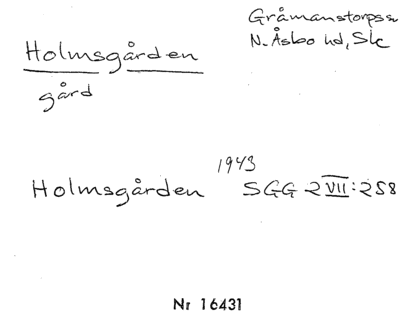 Gråmanstorps sn
N. Åsbo hd, Skc
Holmsgården
gård
1943
Holmsgården SGG 2 VII:258
Nr 16431